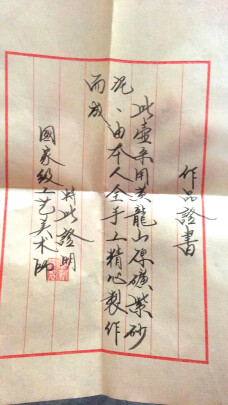 作品證書
此壺采用黃龍山原礦紫砂
泥、由本人全手工精心製作
而成
特此證明
國家級工艺美术師